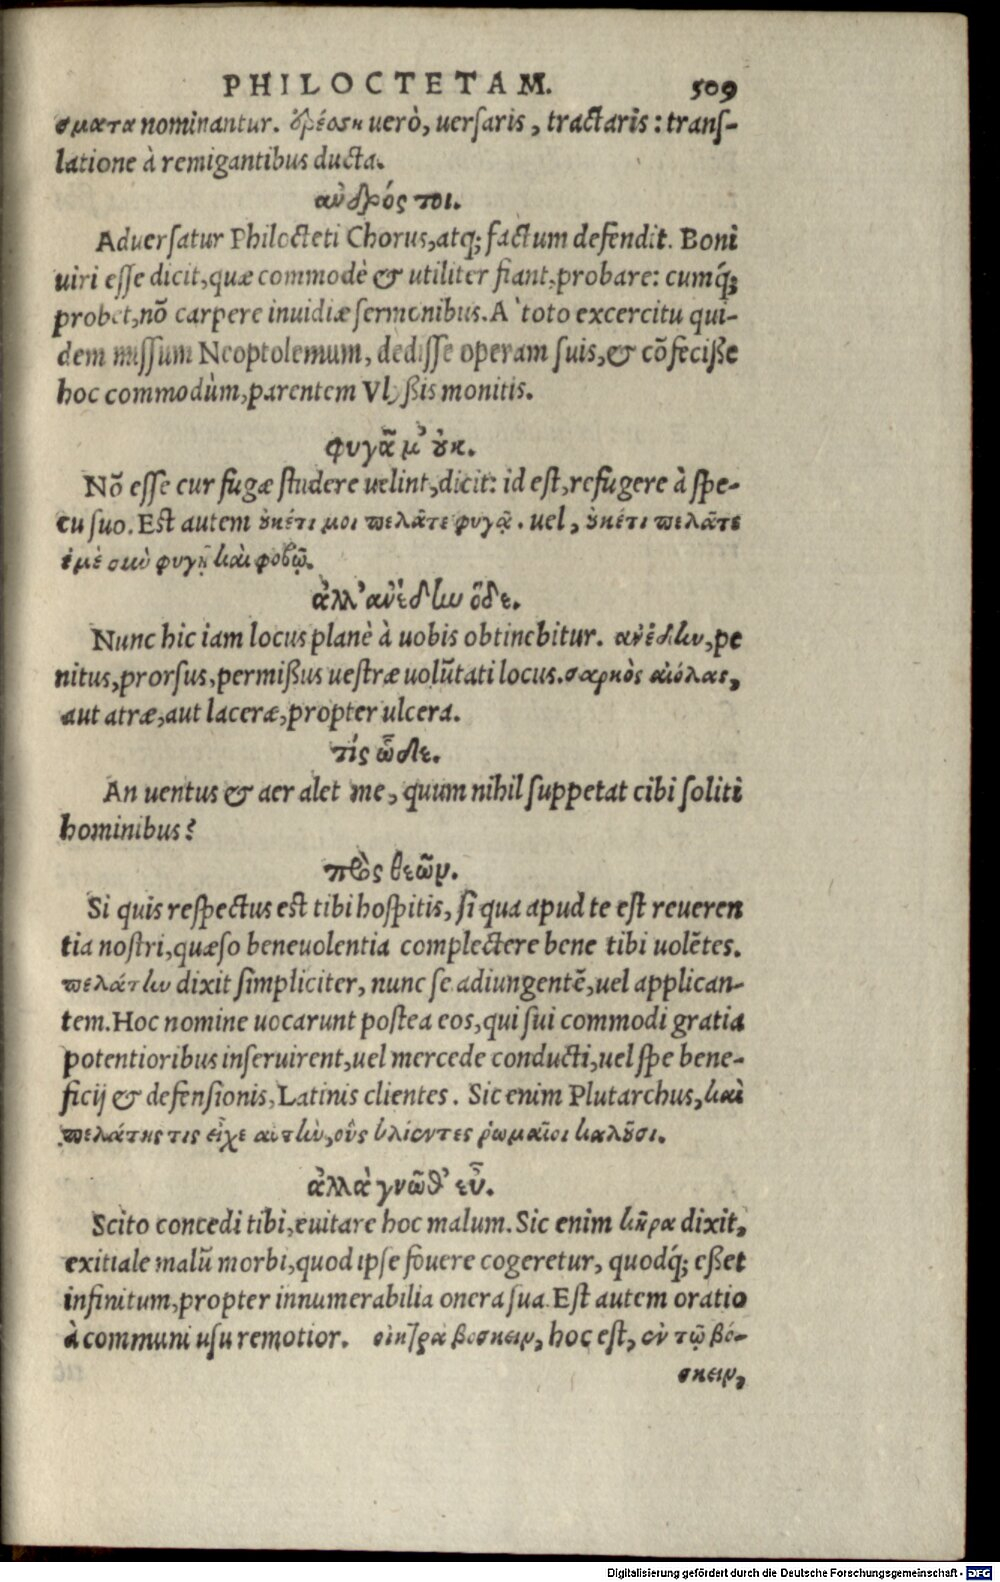 PHILOCTETAM. 509
σματα nominantur. ἐρέσσῃ uerò, uersaris, tractaris: trans-
latione à remigantibus ducta.
ἀνδρός τοι.
Aduersatur Philocteti Chorus, atq; factum defendit. Boni
uiri esse dicit, quæ commodè & utiliter fiant, probare: cumq́;
probet, nõ carpere inuidiæ sermonibus. A` toto excercitu qui-
dem missum Neoptolemum, dedisse operam suis, & cõfecisse
hoc commodùm, parentem Vlyssis monitis.
φυγᾷ μ' οὐκ.
Nõ esse cur fugæ studere uelint, dicit: id est, refugere à spe-
cu suo. Est autem οὐκέτι μοι πελᾶτε φυγᾷ. uel, οὐκέτι πελᾶτε
ἐμὲ σὺν φυγῇ καὶ φοβῷ.
ἀλλ' ἀνέδην ὅδε.
Nunc hic iam locus planè à uobis obtinebitur. ἀνέδην, pe
nitus, prorsus, permissus uestræ uolũtati locus. σαρκὸς αἰόλας,
aut atræ, aut laceræ, propter ulcera.
τίς ὧδε.
An uentus & aer alet me, quum nihil suppetat cibi soliti
hominibus?
πρὸς θεῶν.
Si quis respectus est tibi hospitis, si qua apud te est reueren
tia nostri, quæso beneuolentia complectere bene tibi uolẽtes.
πελάτην dixit simpliciter, nunc se adiungentẽ, uel applican-
tem. Hoc nomine uocarunt postea eos, qui sui commodi gratia
potentioribus inseruirent, uel mercede conducti, uel spe bene-
ficij & defensionis, Latinis clientes. Sic enim Plutarchus, καὶ
πελάτης τις εἶχε αὐτὴν, οὓς κλίεντες ῥωμαῖοι καλοῦσι.
ἀλλὰ γνῶθ' εὖ.
Scito concedi tibi, euitare hoc malum. Sic enim κῆρα dixit,
exitiale malũ morbi, quod ipse fouere cogeretur, quodq́; esset
infinitum, propter innumerabilia onera sua. Est autem oratio
à communi usu remotior. οἰκτρὰ βόσκειν, hoc est, ἐν τῷ βό-
σκειν,
Digitalisierung gefördert durch die Deutsche Forschungsgemeinschaft - DFG